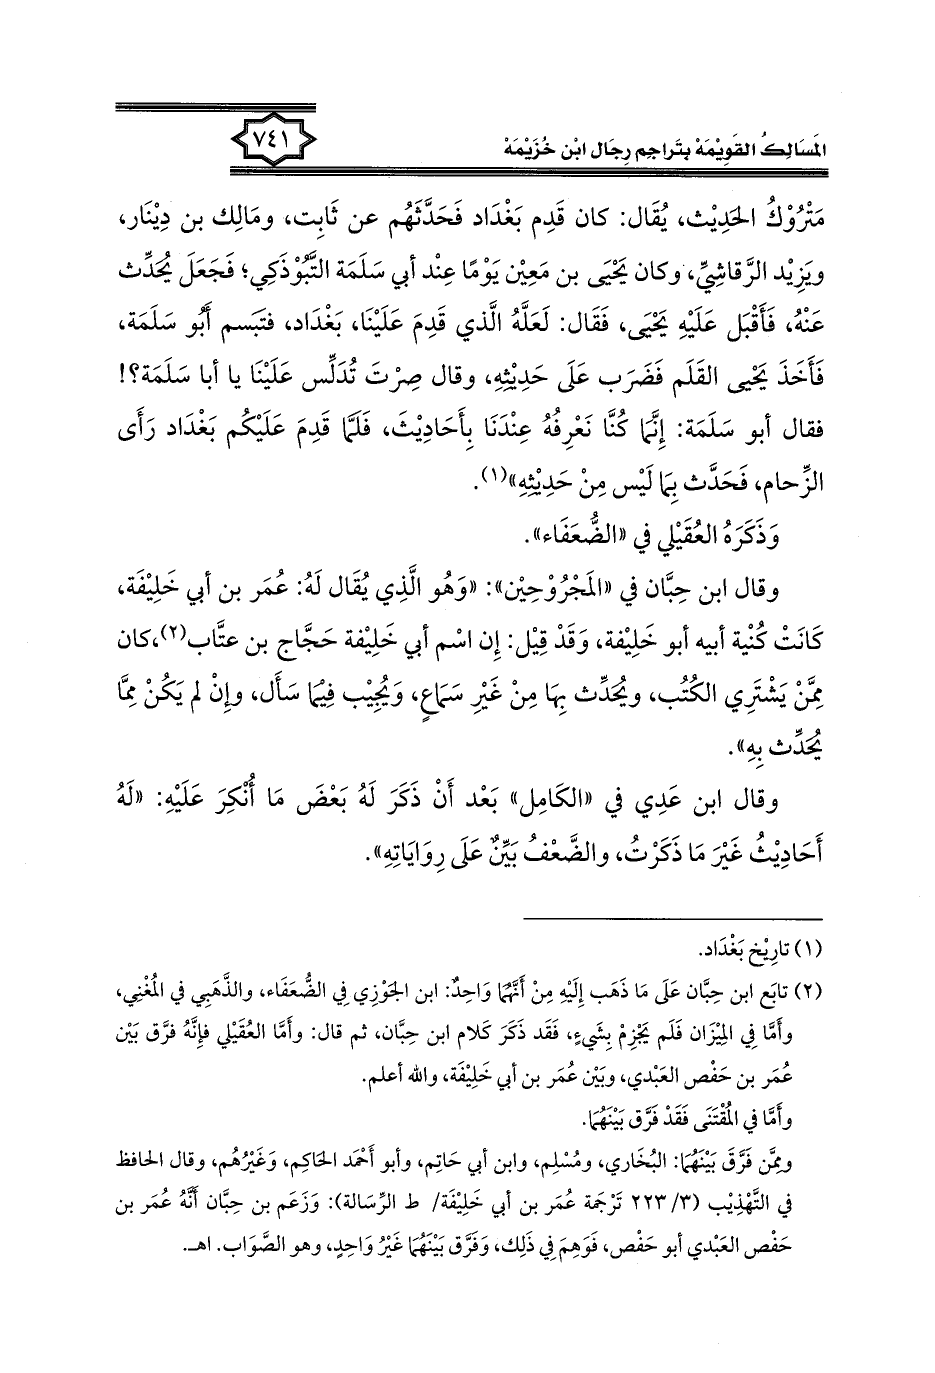 المَسَالِكُ القَوِيْمَة بِتَراجِم رِجَال ابْن خُزَيْمَة
٧٤١
مَتْرُوْكُ الحَدِيْث، يُقَال: كان قَدِم بَغْدَاد فَحَدَّثَهُم عن ثَابِت، ومَالِك بن دِيْنَار،
ويَزِيْد الرَّقاشِيِّ، وكان يَحْيَى بن مَعِيْن يَوْمًا عِنْد أبي سَلَمَة التَّبُوْذَكِي؛ فَجَعَل يُحَدِّث
عَنْهُ، فَأَقْبَل عَلَيْهِ يَحْيَى، فَقَال: لَعَلَّهُ الَّذي قَدِمَ عَلَيْنَا، بَغْدَاد، فتَبَسم أَبُو سَلَمَة،
فَأَخَذَ يَحْيى القَلَم فَضَرَب عَلَى حَدِيْثِهِ، وقال صِرْتَ تُدَلِّس عَلَيْنَا يا أبا سَلَمَة؟!
فقال أبو سَلَمَة: إِنَّمَا كُنَّا نَعْرِفُهُ عِنْدَنَا بِأَحَادِيْثَ، فَلَمَّا قَدِمَ عَلَيْكُم بَغْدَاد رَأَى
الزِّحام، فَحَدَّث بِمَا لَيْس مِنْ حَدِيْثِهِ»(١).
وَذَكَرَهُ العُقَيْلي في «الضُّعَفَاء».
وقال ابن حِبَّان في «المَجْرُوْحِيْن»: «وَهُو الَّذِي يُقَال لَهُ: عُمَر بن أبي خَلِيْفَة،
كَانَتْ كُنْيَة أبيه أبو خَلِيْفة، وَقَدْ قِيْل: إن اسْم أبي خَلِيْفة حَجَّاج بن عتَّاب(٢)،كان
مِمَّنْ يَشْتَرِي الكُتُب، ويُحَدِّث بِهَا مِنْ غَيْرِ سَمَاعٍ، وَيُجِيْب فِيْمَا سَأَل، وإِنْ لم يَكُنْ مِمَّا
يُحَدِّث بِهِ».
وقال ابن عَدِي في «الكَامِل» بَعْد أَنْ ذَكَرَ لَهُ بَعْضَ مَا أُنْكِرَ عَلَيْهِ: «لَهُ
أَحَادِيْثُ غَيْرَ مَا ذَكَرْتُ، والضَّعْفُ بَيِّنٌ عَلَى رِوَايَاتِهِ».
(١) تارِيْخ بَغْدَاد.
(٢) تابَع ابن حِبَّان عَلَى مَا ذَهَب إِلَيْهِ مِنْ أَنَّهُمَا وَاحِدٌ: ابن الجَوْزِي فِي الضُّعَفَاء، والذَّهَبي في المُغْنِي،
وأَمَّا في المِيْزَان فَلَم يَجْزِمْ بِشَيءٍ، فَقَد ذَكَرَ كَلام ابن حِبَّان، ثم قال: وأَمَّا العُقَيْلي فإِنَّهُ فرَّق بَيْن
عُمَر بن حَفْص العَبْدي، وبَيْن عُمَر بن أبي خَلِيْفَة، والله أعلم.
وأَمَّا في المُقْتَنَى فَقَدْ فَرَّق بَيْنَهُمَا.
وممَّن فَرَّقَ بَيْنَهُمَا: البُخَاري، ومُسْلِم، وابن أبي حَاتِم، وأبو أَحْمَد الحَاكِم، وَغَيْرُهُم، وقال الحافظ
في التَّهْذِيْب (٣/ ٢٢٣ تَرْجَمَة عُمَر بن أبي خَلِيْفَة/ ط الرِّسالة): وَزَعَم بن حِبَّان أَنَّهُ عُمَر بن
حَفْص العَبْدي أبو حَفْص، فَوَهِمَ فِي ذَلِك، وَفَرَّق بَيْنَهُمَا غَيْرُ وَاحِدٍ، وهو الصَّوَاب. اهـ.